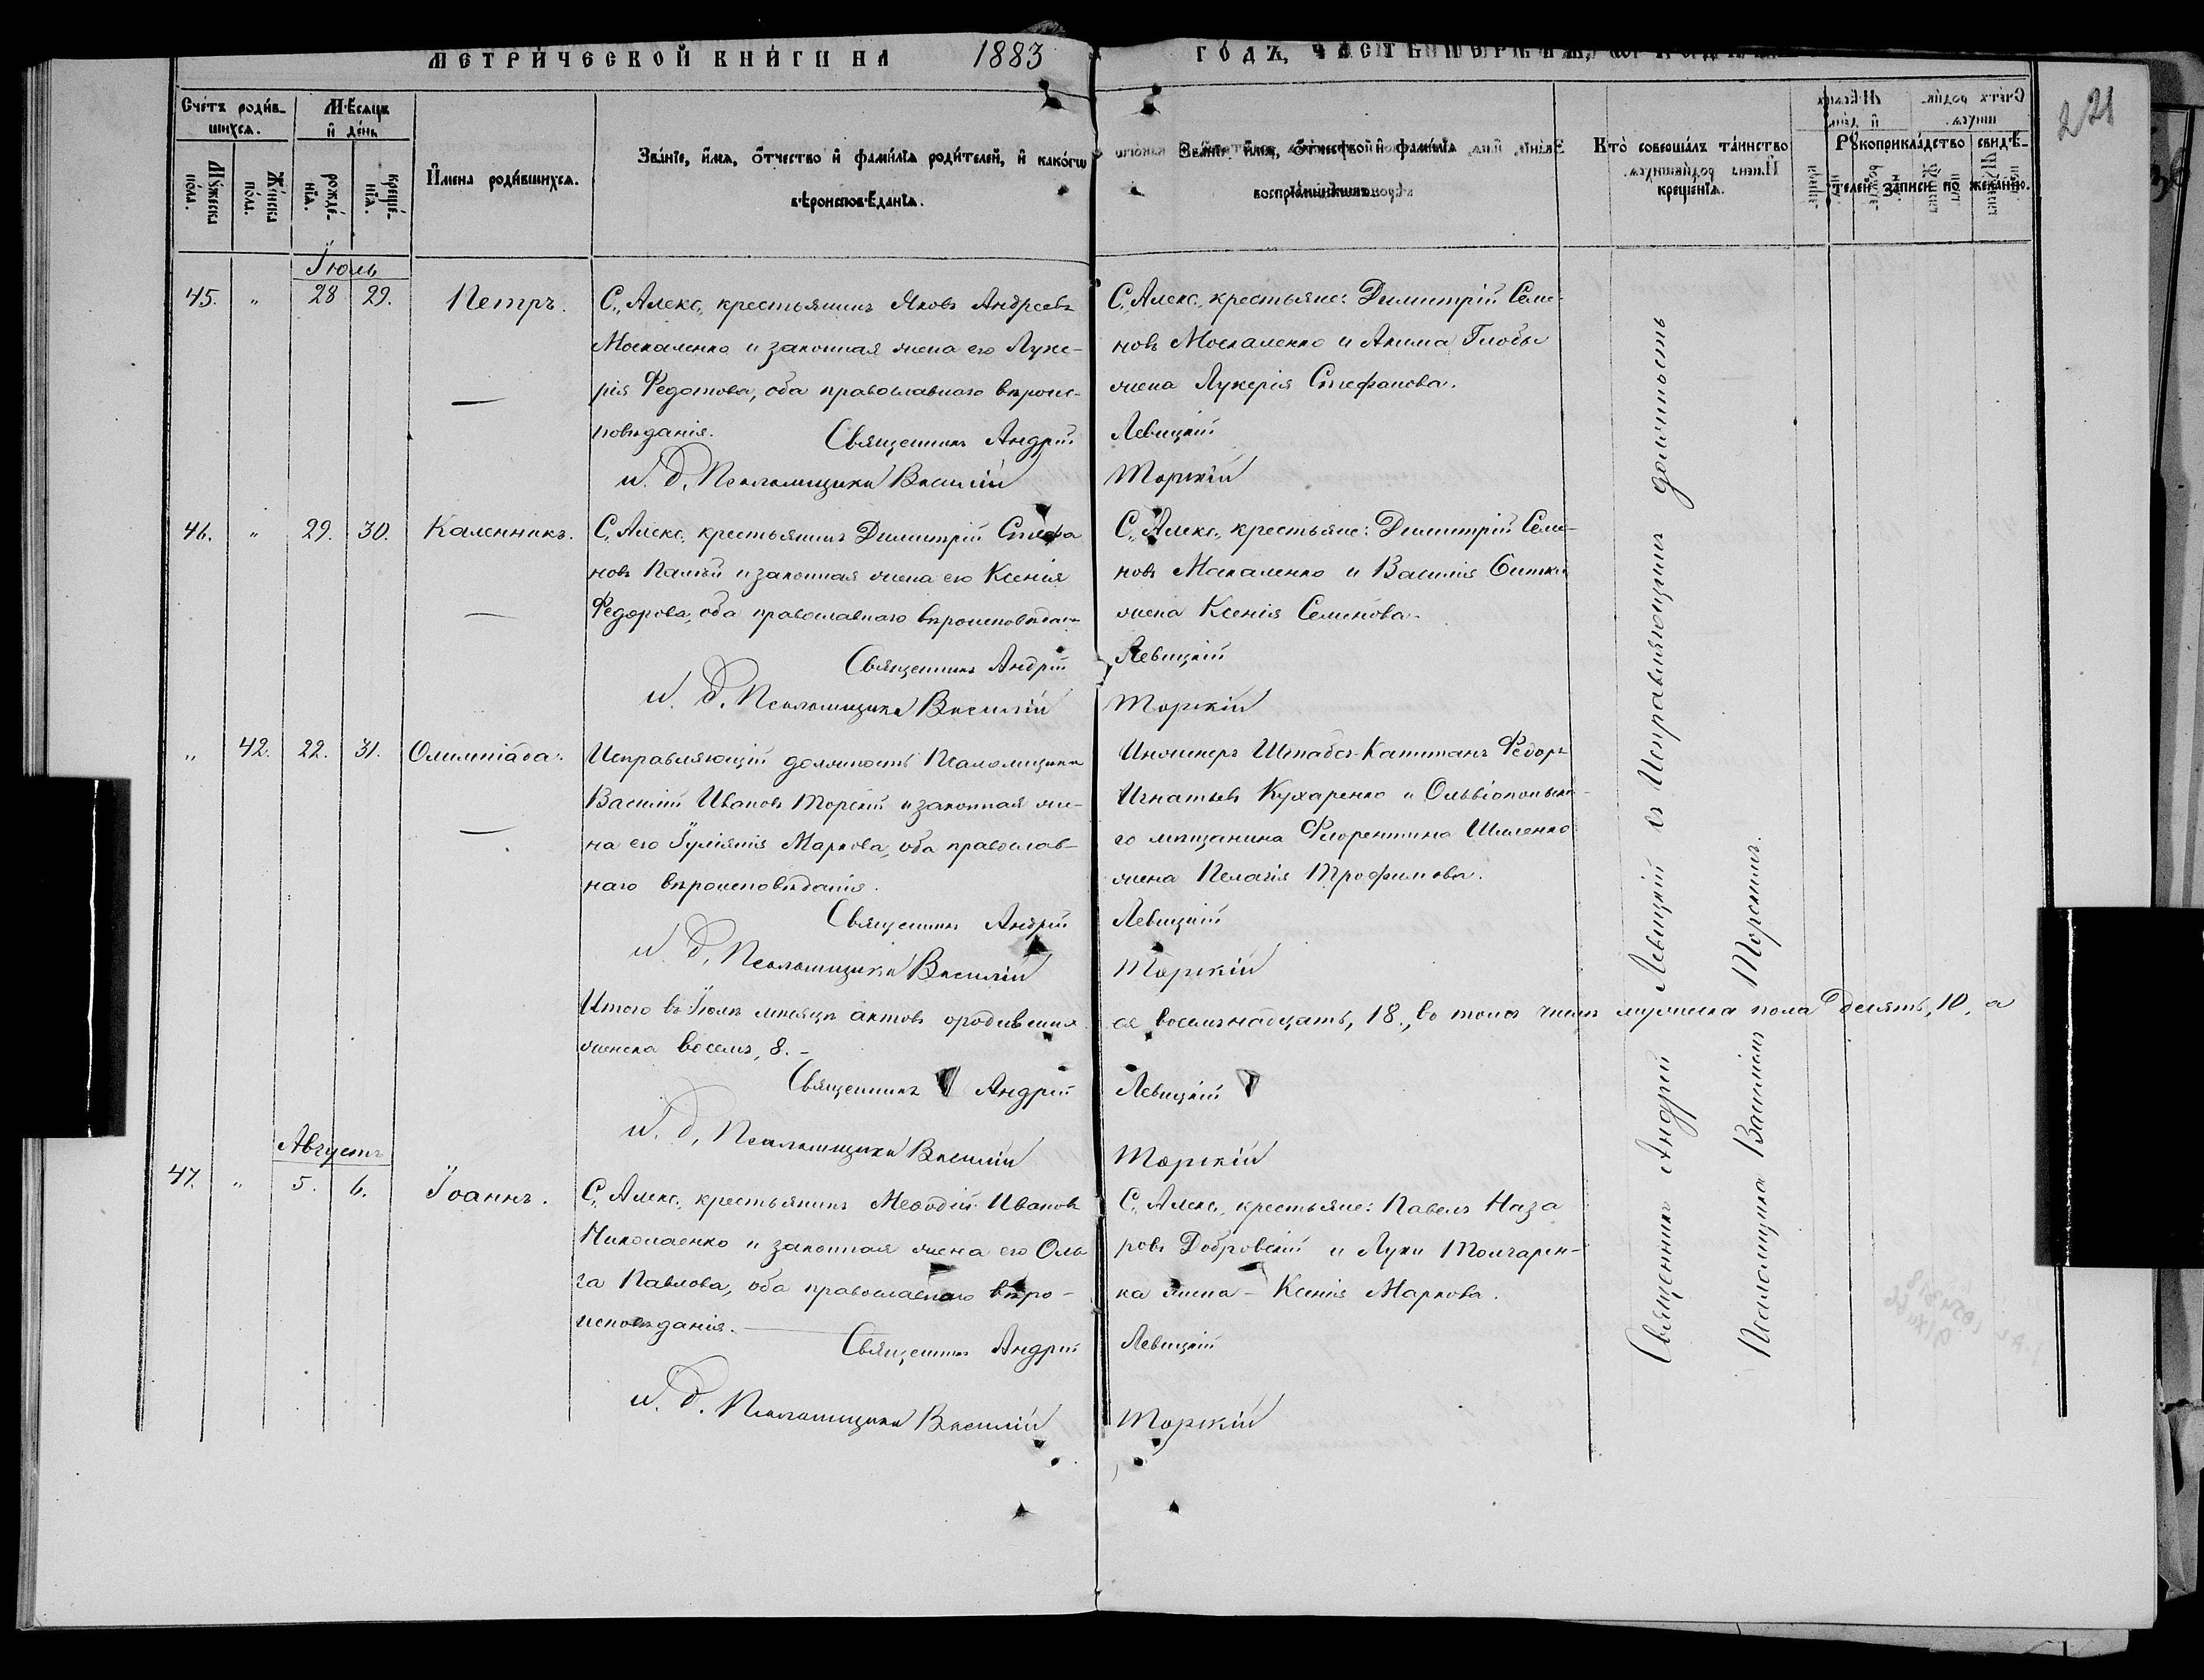 МЕТРИ́ЧЕСКОЙ КНИ́ГИ НА 1883 ГО́ДЪ, ЧАСТЬ
221
Сче́тъ роди́в-
шихся.
Му́жеска по́ла.
Же́нска по́ла.
Мѣсяцъ и де́нь
рожде́-нїя.
креще́-нїя.
И́мена роди́вшихся.
Зва́нїе, и́мя, о́тчество и фами́лїя роди́телей, и како́гω
вѣроисповѣданїя.
Зва́нїе, и́мя, о́тчество и фами́лїя
воспрїе́мниковъ.
Кто̀ соверша́лъ та́инство
креще́нїя.
Рꙋкоприкла́дство свидѣ́-
телей за́писи по жела́нїю.
Іюль
45. " 28 29. Петръ.
С. Алекс. крестьянинъ Яковъ Андреевъ
Москаленко и законная жена его Луке-
рія Федотова, оба православнаго вѣроис-
повѣданія.
Священникъ Андрей
и. д. Псаломщика Василій
С. Алекс. крестьяне: Димитрій Семе-
новъ Москаленко и Акима Глобы
жена Лукерія Стефанова.
Левицкій
Торскій
46. " 29. 30. Каленникъ.
С. Алекс. крестьянинъ Димитрій Стефа
новъ Палій и законная жена его Ксенія
Федорова, оба православнаго вѣроисповѣдан.
Священникъ Андрей
и. д. Псаломщика Василій
С. Алекс. крестьяне: Димитрій Семе-
новъ Москаленко и Василія Ситка
жена Ксенія Семенова.
Левицкій
Торскій
" 42. 22. 31. Олимпіада.
Исправляющій должность Псаломщика
Василій Ивановъ Торскій и законная же-
на его Іуліянія Маркова, оба православ-
наго вѣроисповѣданія.
Священникъ Андрей
и. д. Псаломщика Василій
Инженеръ Штабсъ-Капитанъ Федоръ
Игнатьевъ Кухаренко и Ольвіопольска-
го мѣщанина Флорентина Шиленко
жена Пелагія Трофимова.
Левицкій
Торскій
Итого въ Іюлѣ мѣсяцѣ актовъ о родивших
ся восемнадцать, 18., въ томъ числѣ мужеска пола десять, 10, а
женска восемь, 8. -
Священникъ Андрей
и. д. Псаломщика Василій
Левицкій
Торскій
Августъ
47. " 5. 6. Іоаннъ.
С. Алекс. крестьянинъ Меѳодій Ивановъ
Николаенко и законная жена его Оль
га Павлова, оба православнаго вѣро-
исповѣданія.
Священникъ Андрей
и. д. Псаломщика Василій
С. Алекс. крестьяне: Павелъ Наза
ровъ Добровскій и Луки Толчарен-
ка жена - Ксенія Маркова.
Левицкій
Торскій
Священникъ Андрей Левицкій съ Исправляющимъ должность
Псаломщика Василіемъ Торскимъ.